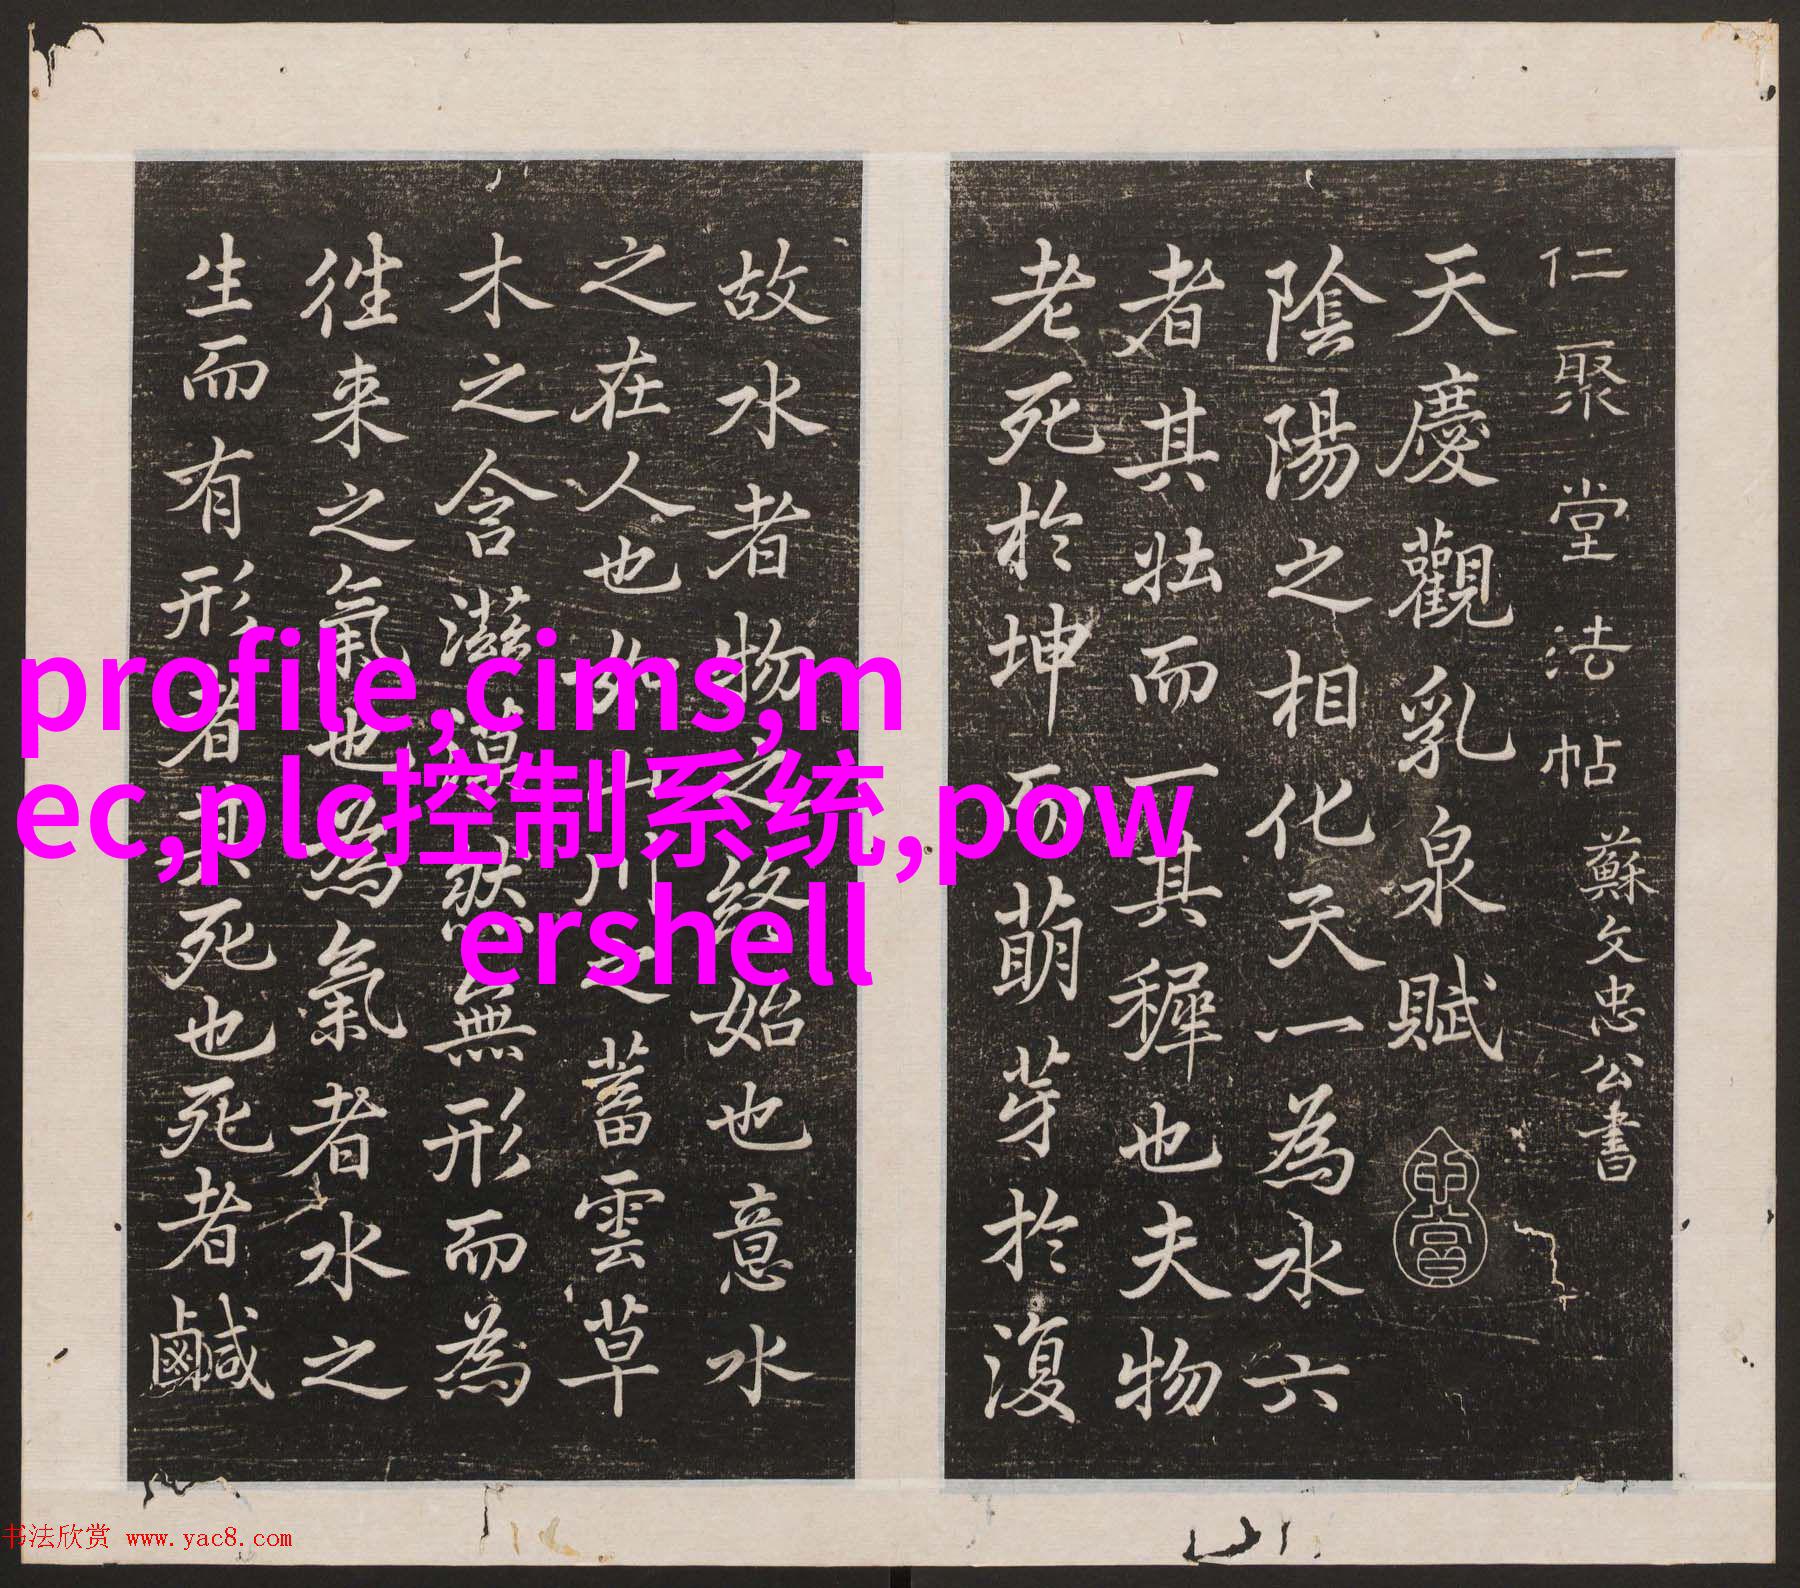 仁聚堂法帖 蘇文忠公書
天慶觀乳泉賦
陰陽之相化天一為水六
者其壯而一其稺也夫物
老死於坤而萌芽於復
故水者物之終始也意水
之在人也如山川之蓄雲草
木之含滋漠然無形而為
徃来之氣也為氣者水之
生而有形者其死也死者鹹
profile,cims,m
ec,plc控制系统,pow
ershell
书法欣赏 www.yac8.com